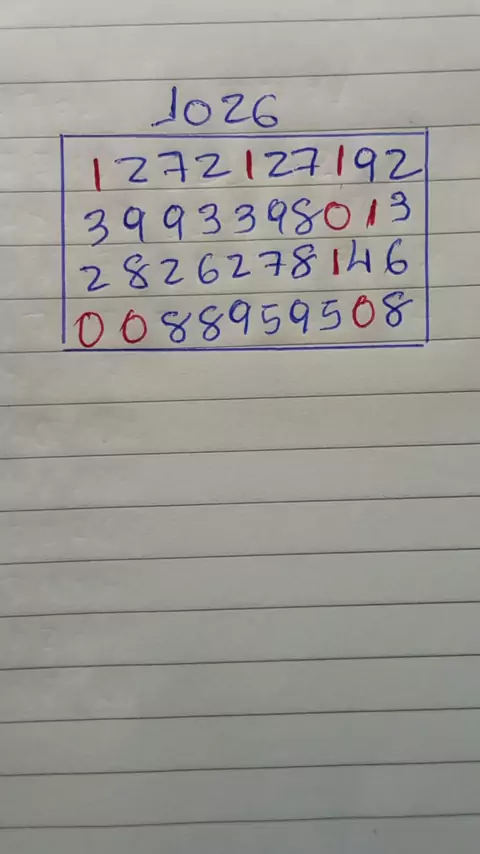 1026
1272127192
3993398013
2826278146
0088959508